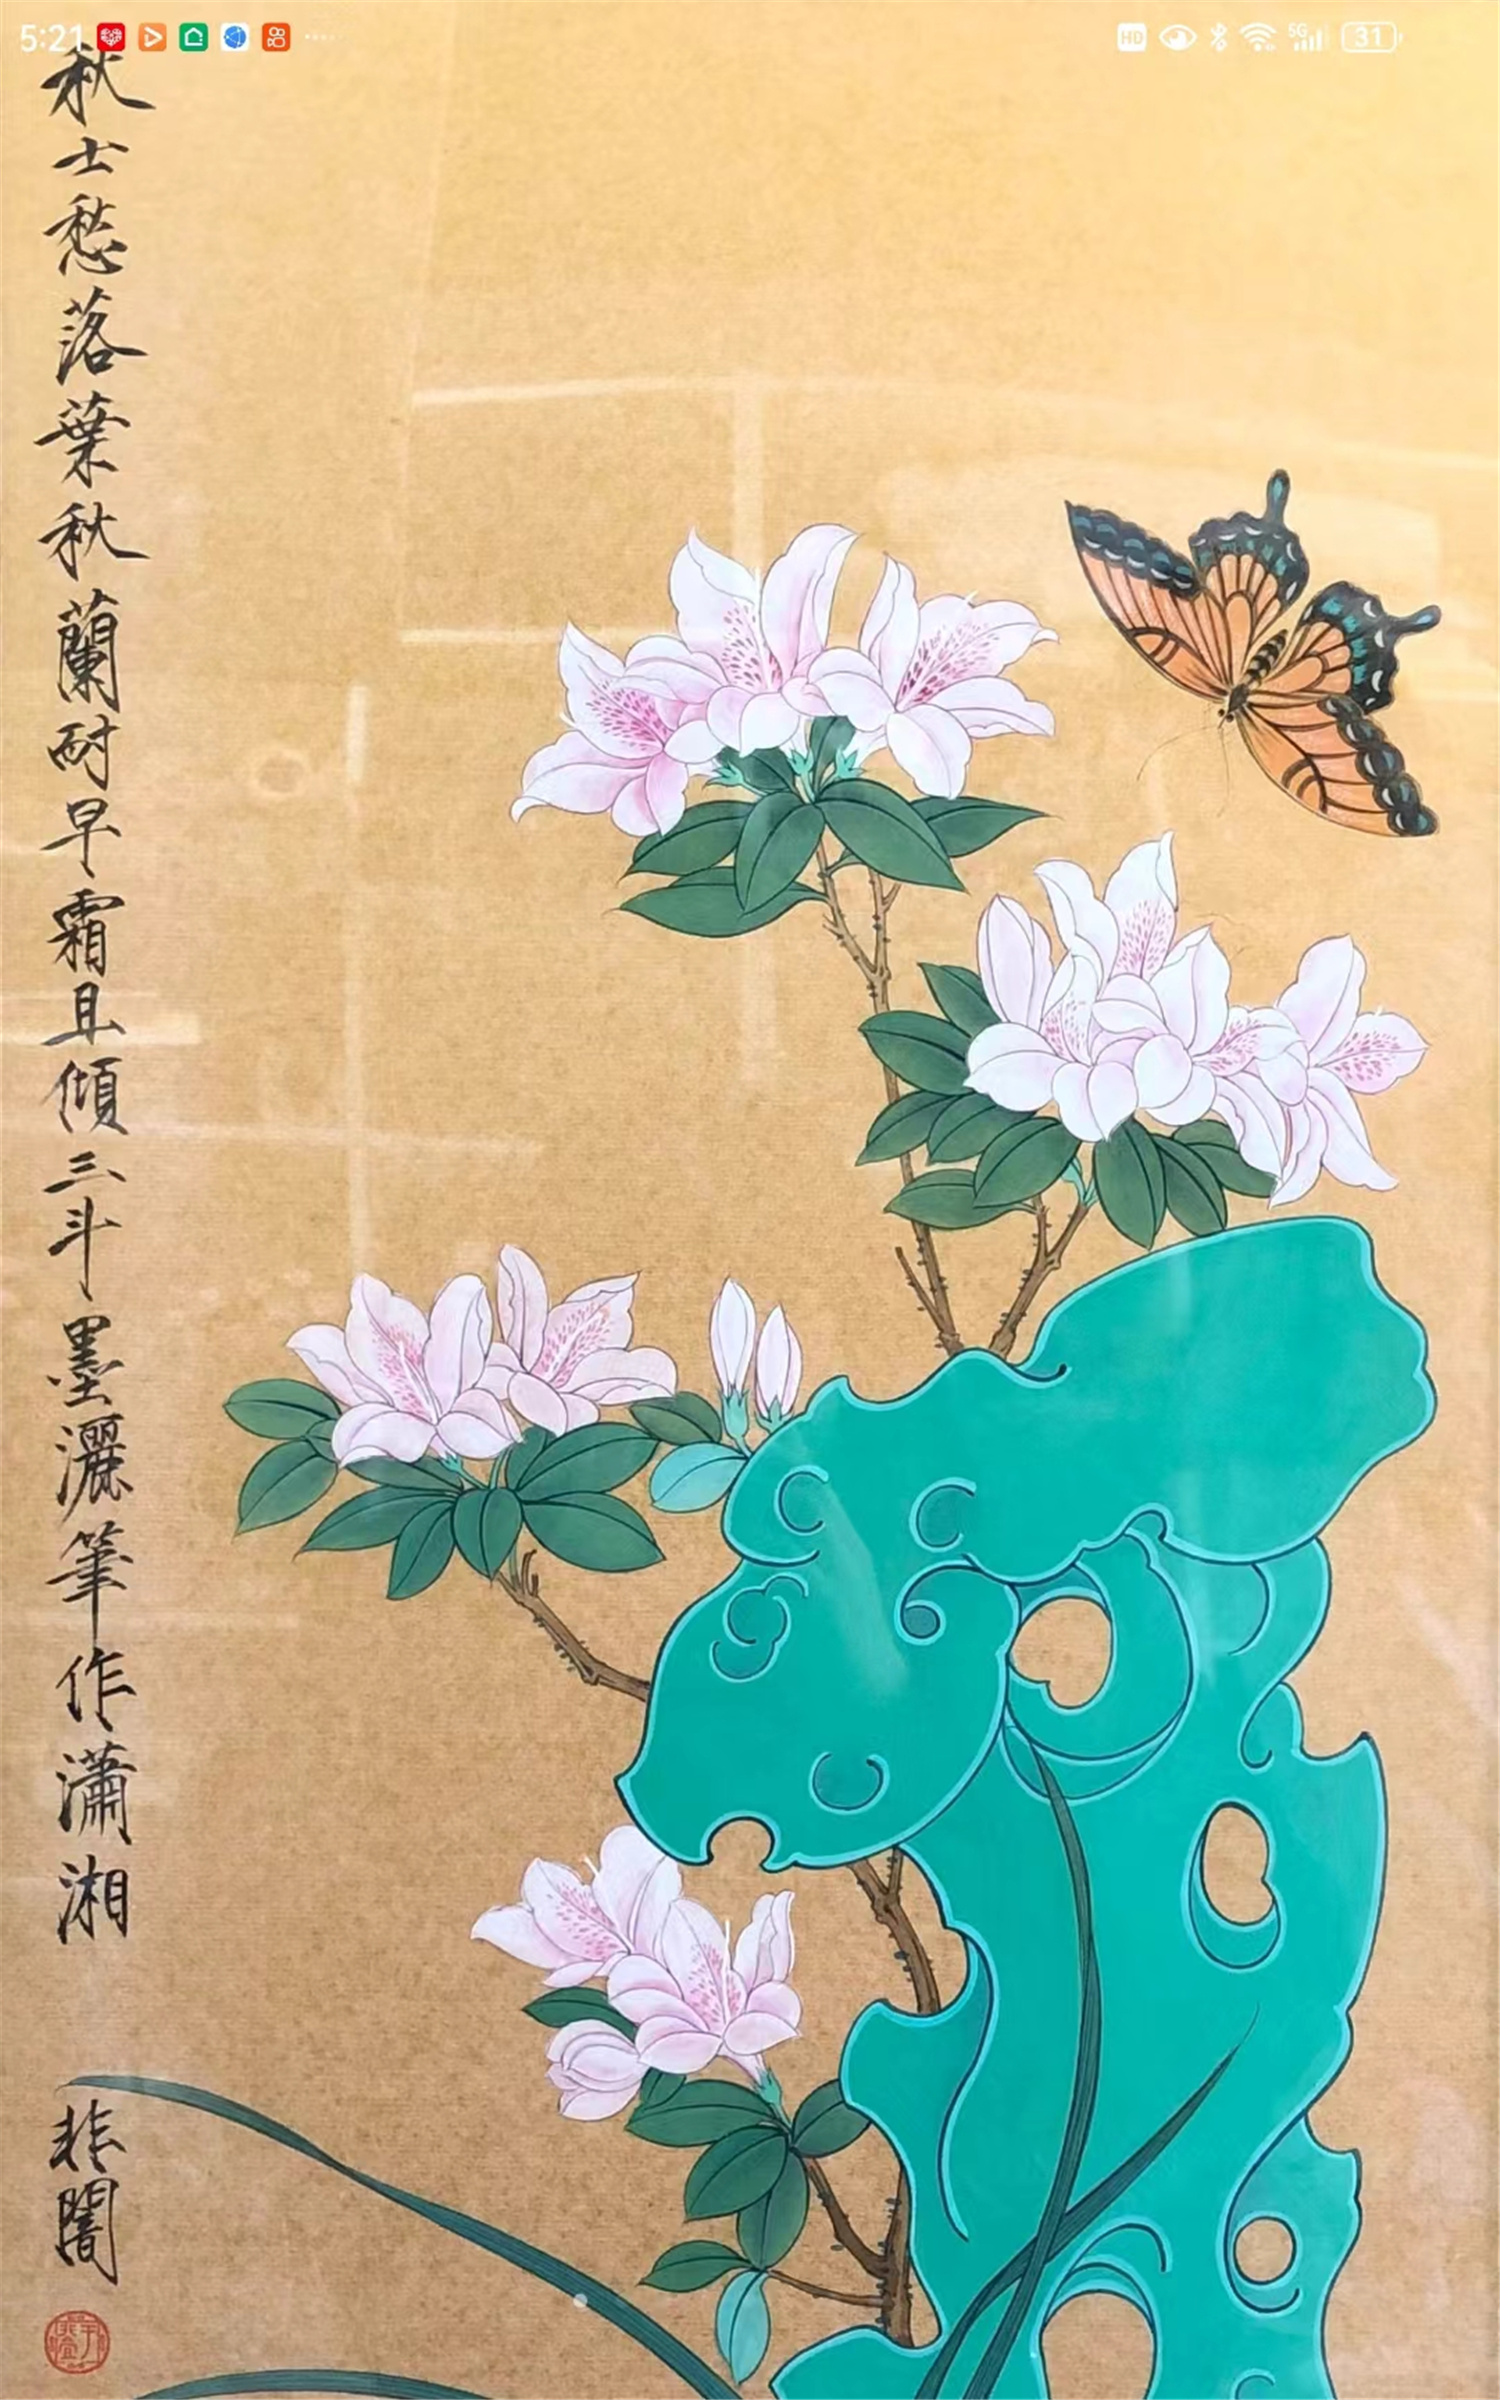 5:21
HD
5G
31
秋士愁落葉秋蘭耐早霜且傾三斗墨灑筆作瀟湘
非闇